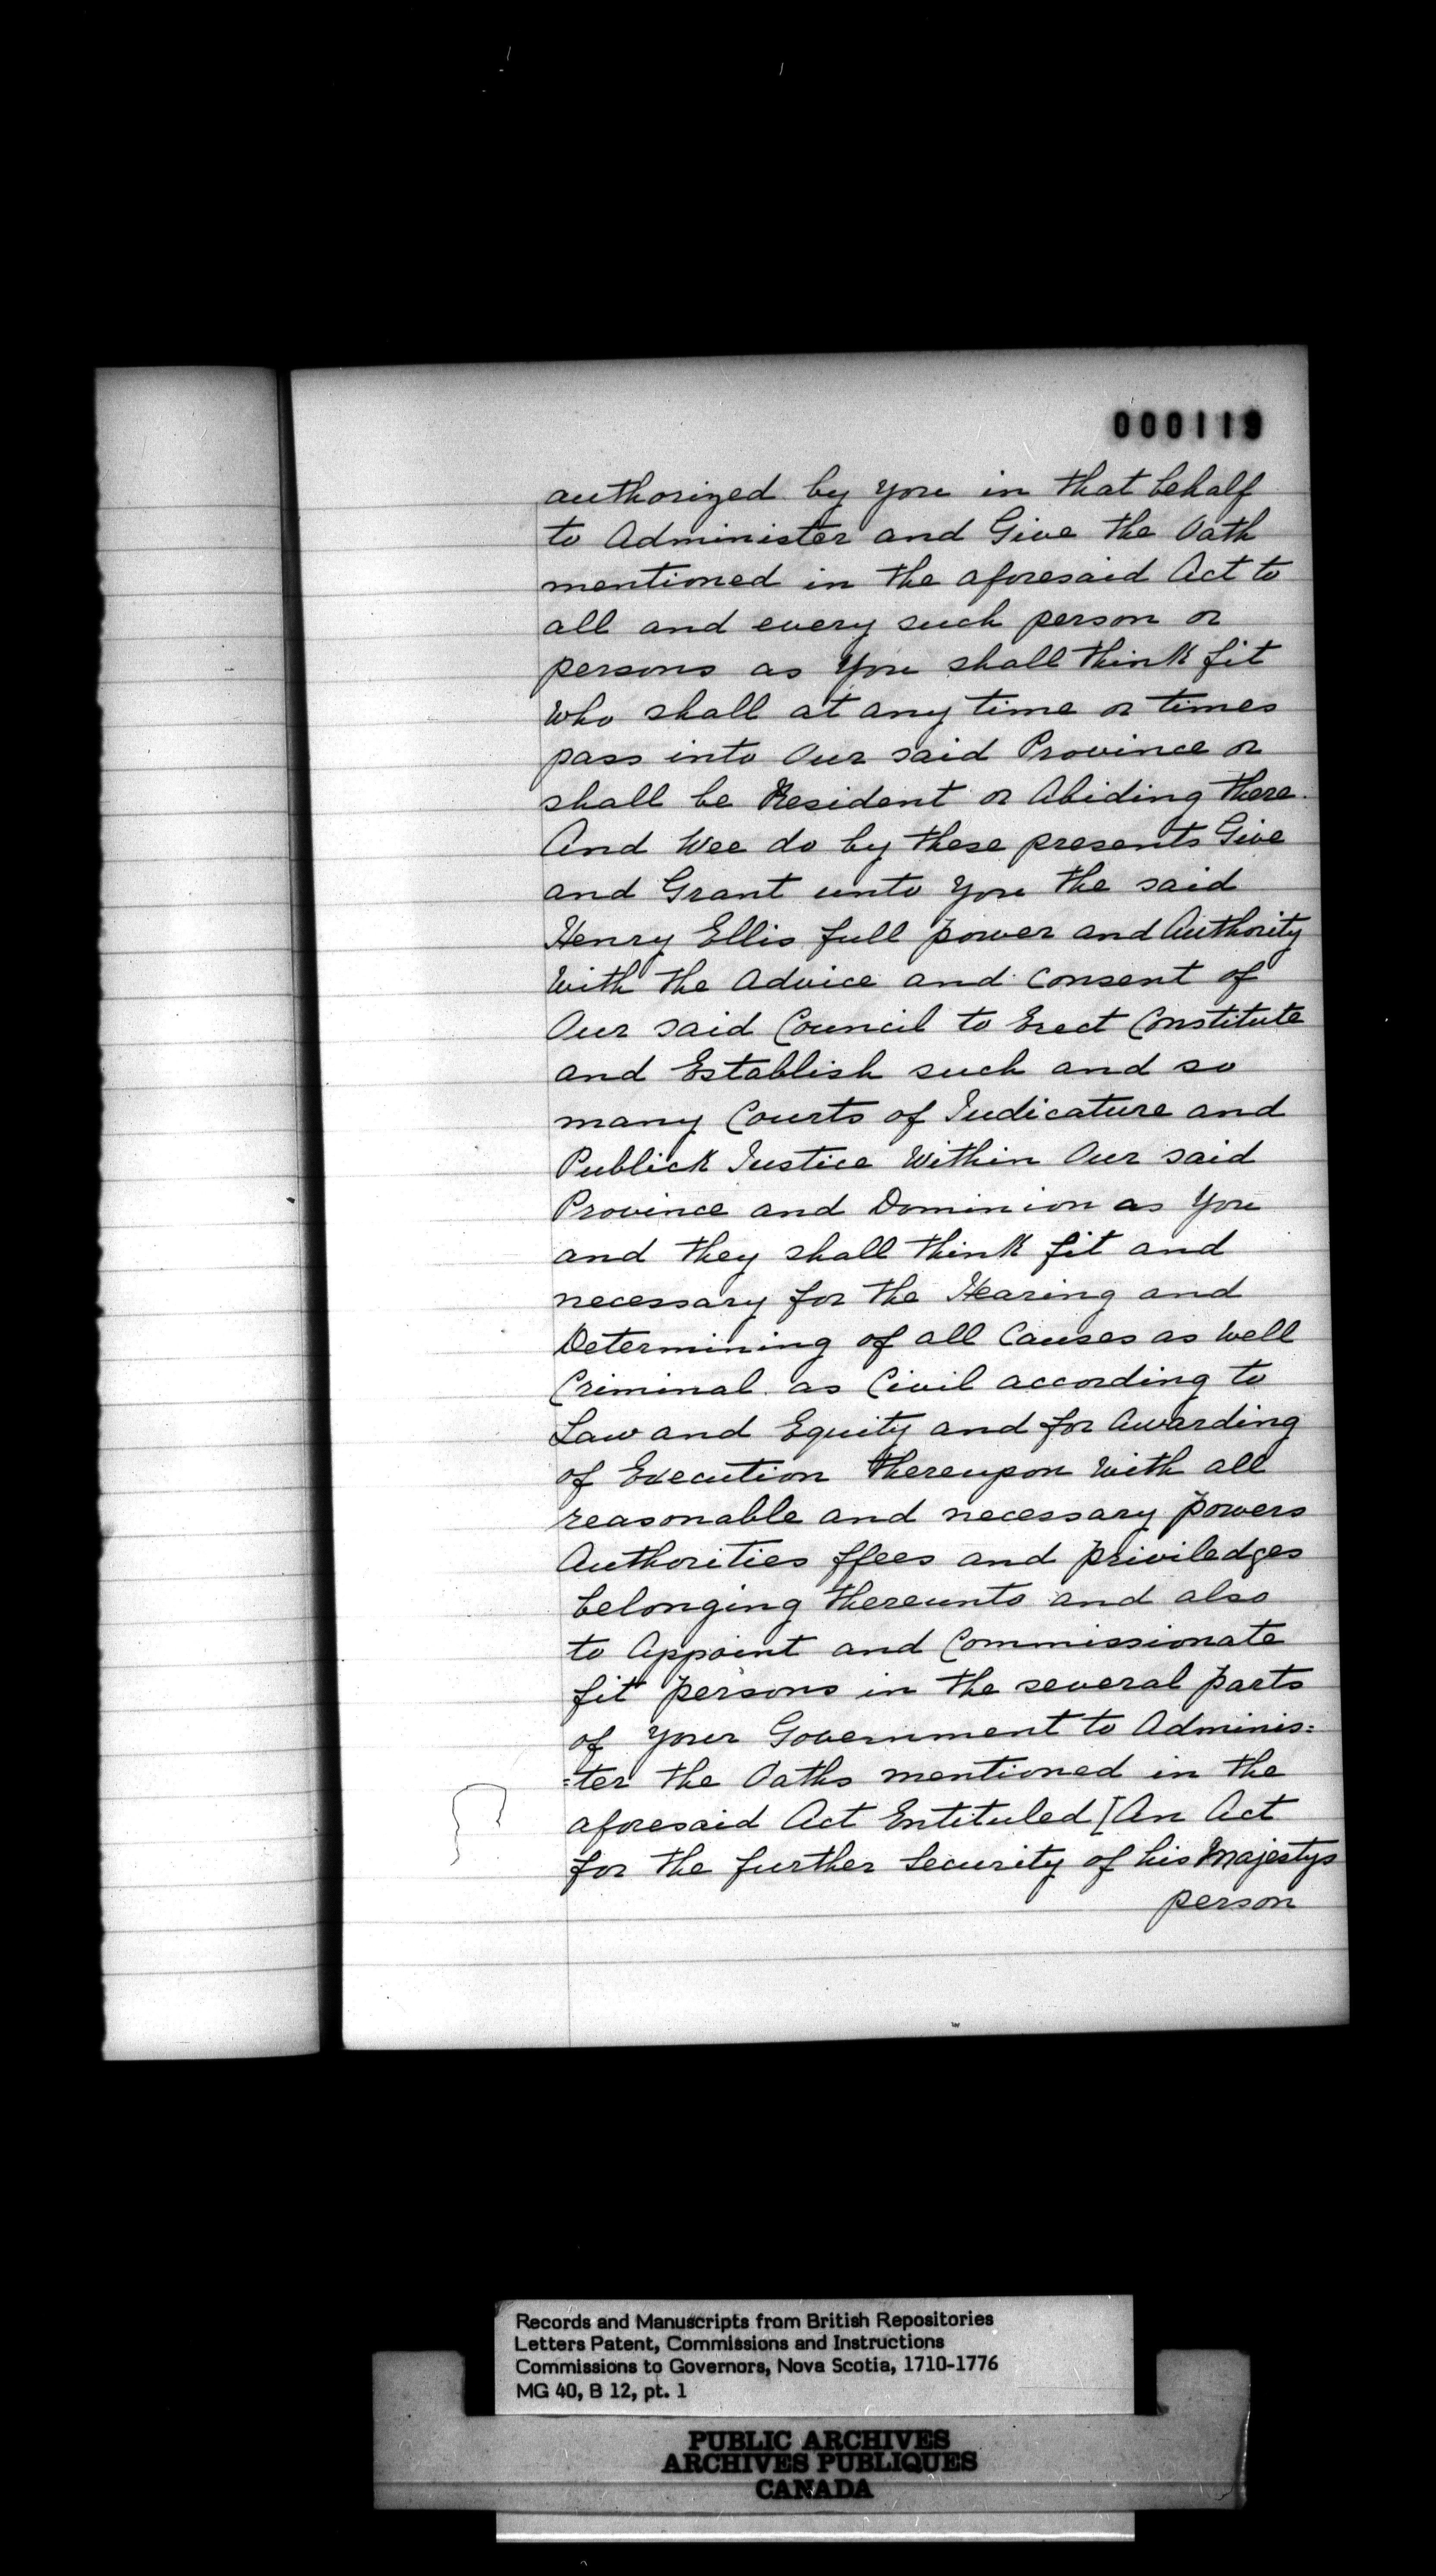 000119
authorized by you in that behalf
to Administer and Give the Oath
mentioned in the aforesaid Act to
all and every such person or
persons as You shall think fit
who shall at any time or times
pass into Our said Province or
shall be Resident or Abiding there.
And Wee do by these presents Give
and Grant unto You the said
Henry Ellis full power and Authority
with the Advice and Consent of
Our said Council to Erect Constitute
and Establish such and so
many Courts of Judicature and
Publick Justice Within Our said
Province and Dominion as You
and they shall think fit and
necessary for the Hearing and
Determining of all Causes as well
Criminal as Civil according to
Law and Equity and for Awarding
of Execution thereupon with all
reasonable and necessary powers
Authorities ffees and priviledges
belonging thereunto and also
to Appoint and Commissionate
fit persons in the several parts
of your Government to Adminis=
=ter the Oaths mentioned in the
aforesaid Act Entituled [An Act
for the further Security of his Majestys
person
Records and Manuscripts from British Repositories
Letters Patent, Commissions and Instructions
Commissions to Governors, Nova Scotia, 1710-1776
MG 40, B 12, pt. 1
PUBLIC ARCHIVES
ARCHIVES PUBLIQUES
CANADA